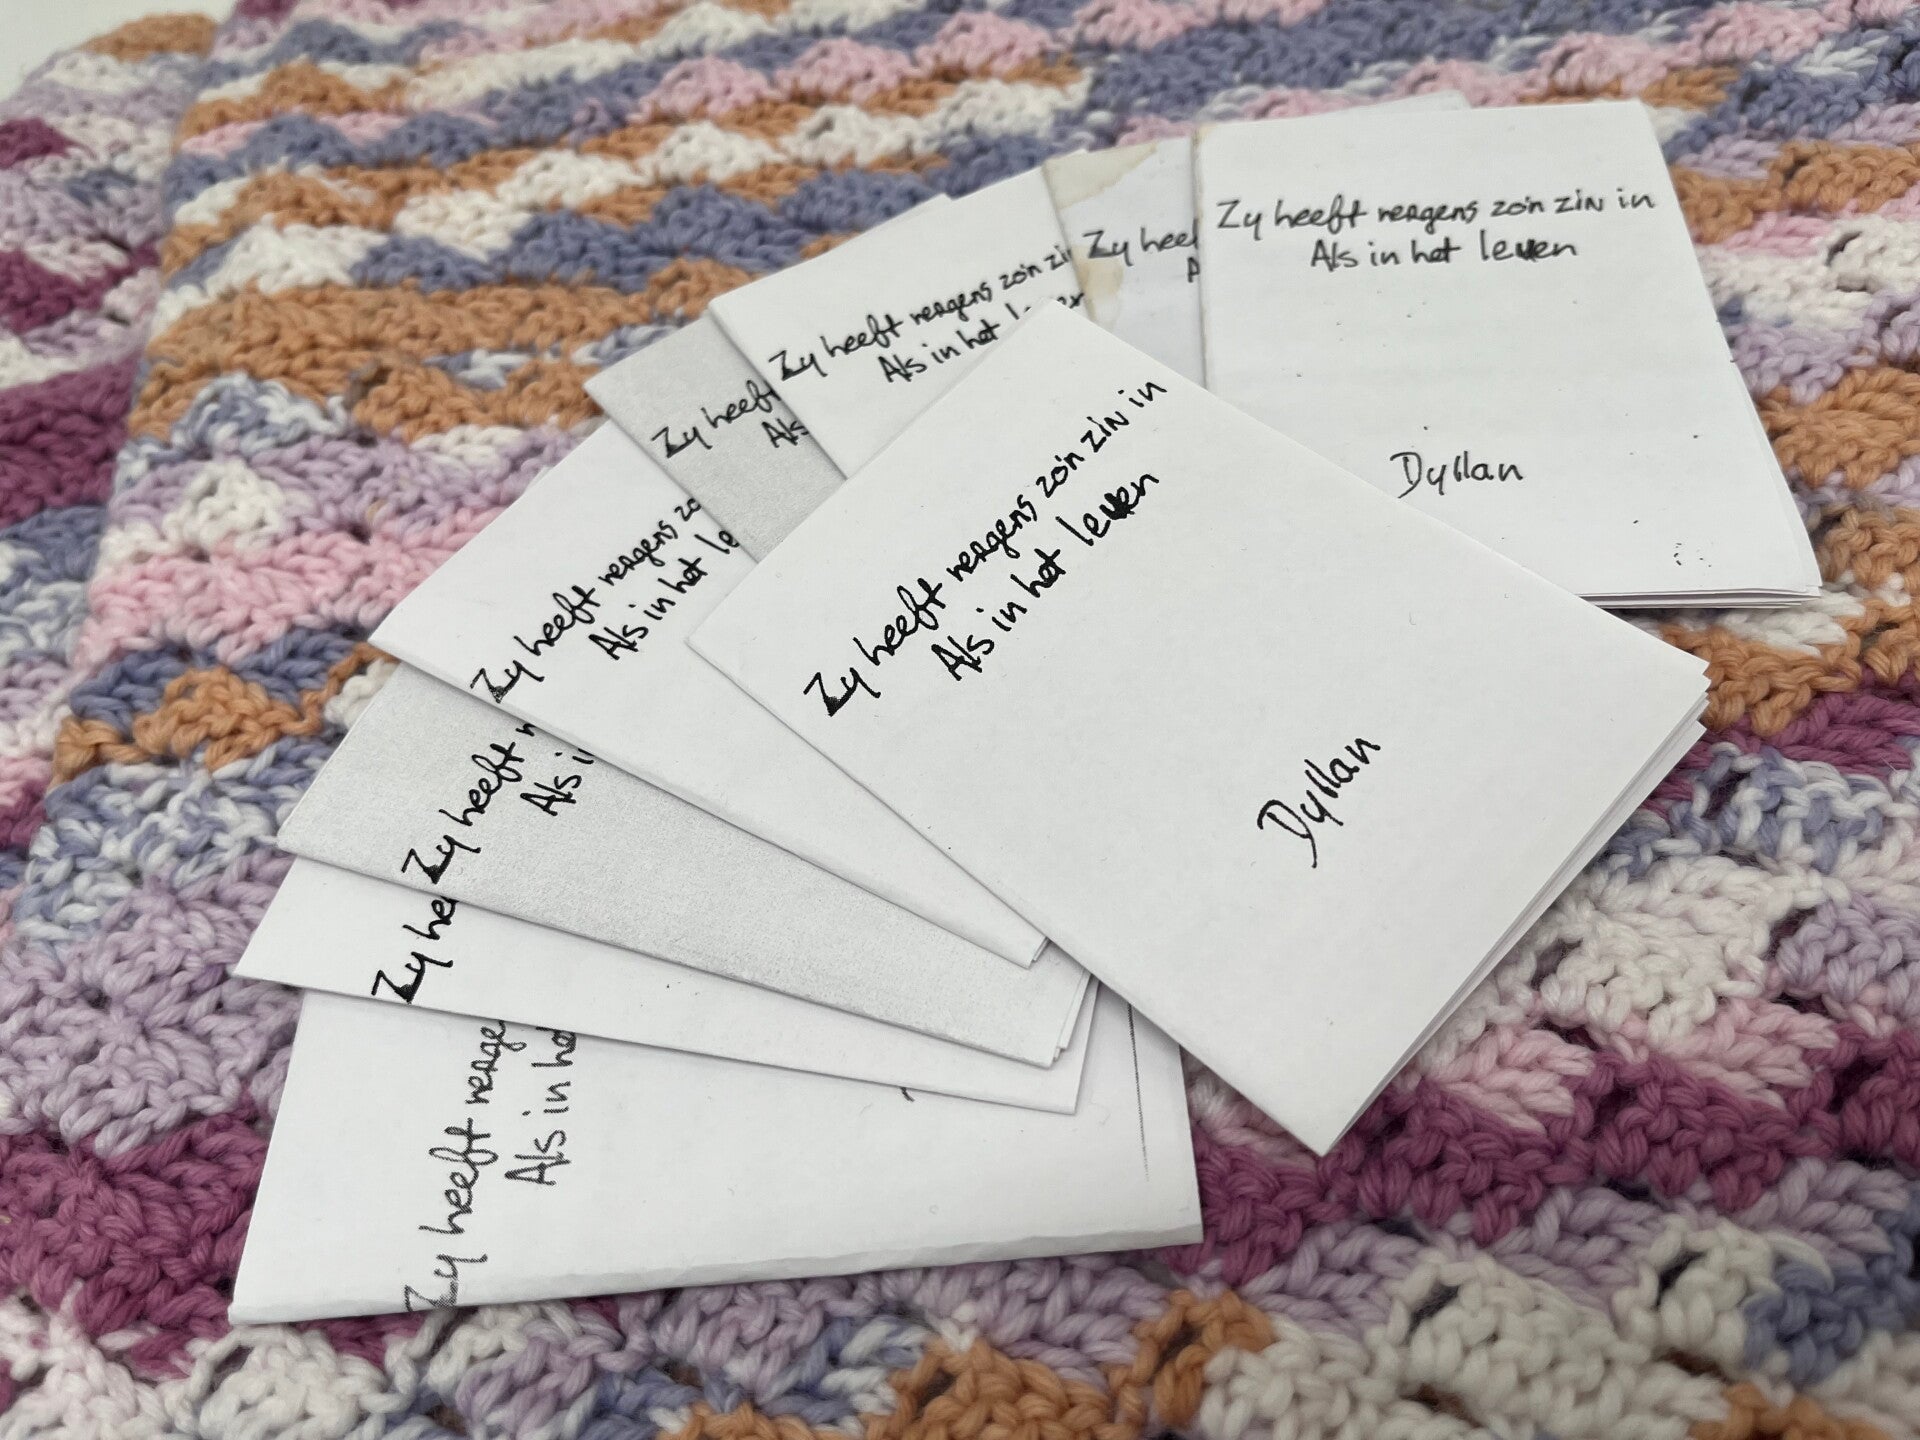 Zy heeft nergens zo'n zin in
Als in het leven
Dyllan
Zy heef
A
Zy heeft nergens zo'n zin
Als in het l
Zy heeft
Als
Zy heeft nergens zo'n zin in
Als in het leven
Dyllan
Zy heeft nergens zo
Als in het le
Zy heeft n
Als i
Zy hee
Zy heeft nerge
Als in het